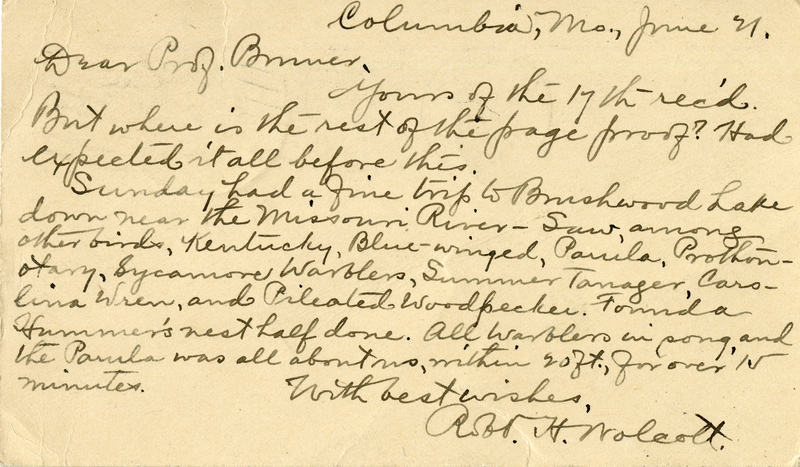 Columbia, Mo., June 21.
Dear Prof. Bruner,
Yours of the 17th rec'd.
But where is the rest of the page proof? Had
expected it all before this.
Sunday had a fine trip to Brushwood Lake
down near the Missouri River – Saw, among
other birds, Kentucky, Blue-winged, Parula, Prothon-
otary, Sycamore Warblers, Summer Tanager, Caro-
lina Wren, and Pileated Woodpecker. Found a
Hummer's nest half done. All Warblers in song, and
the Parula was all about us, within 20 ft., for over 15
minutes.
With best wishes,
Robt. H. Wolcott.